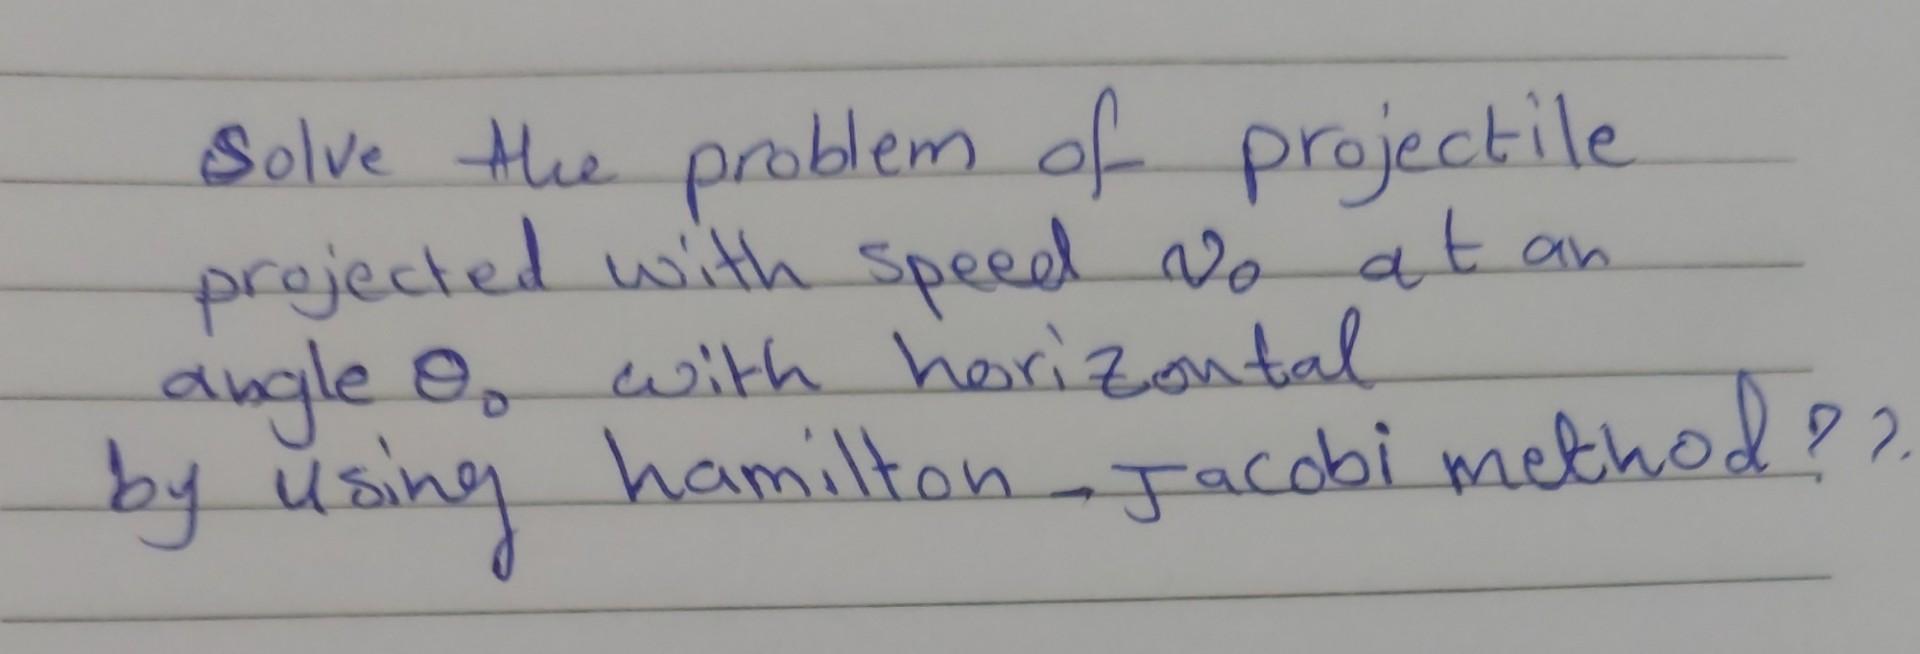 Solve the problem of projectile
projected with speed v₀ at an
angle θ₀ with horizontal
by using hamilton - Jacobi method??